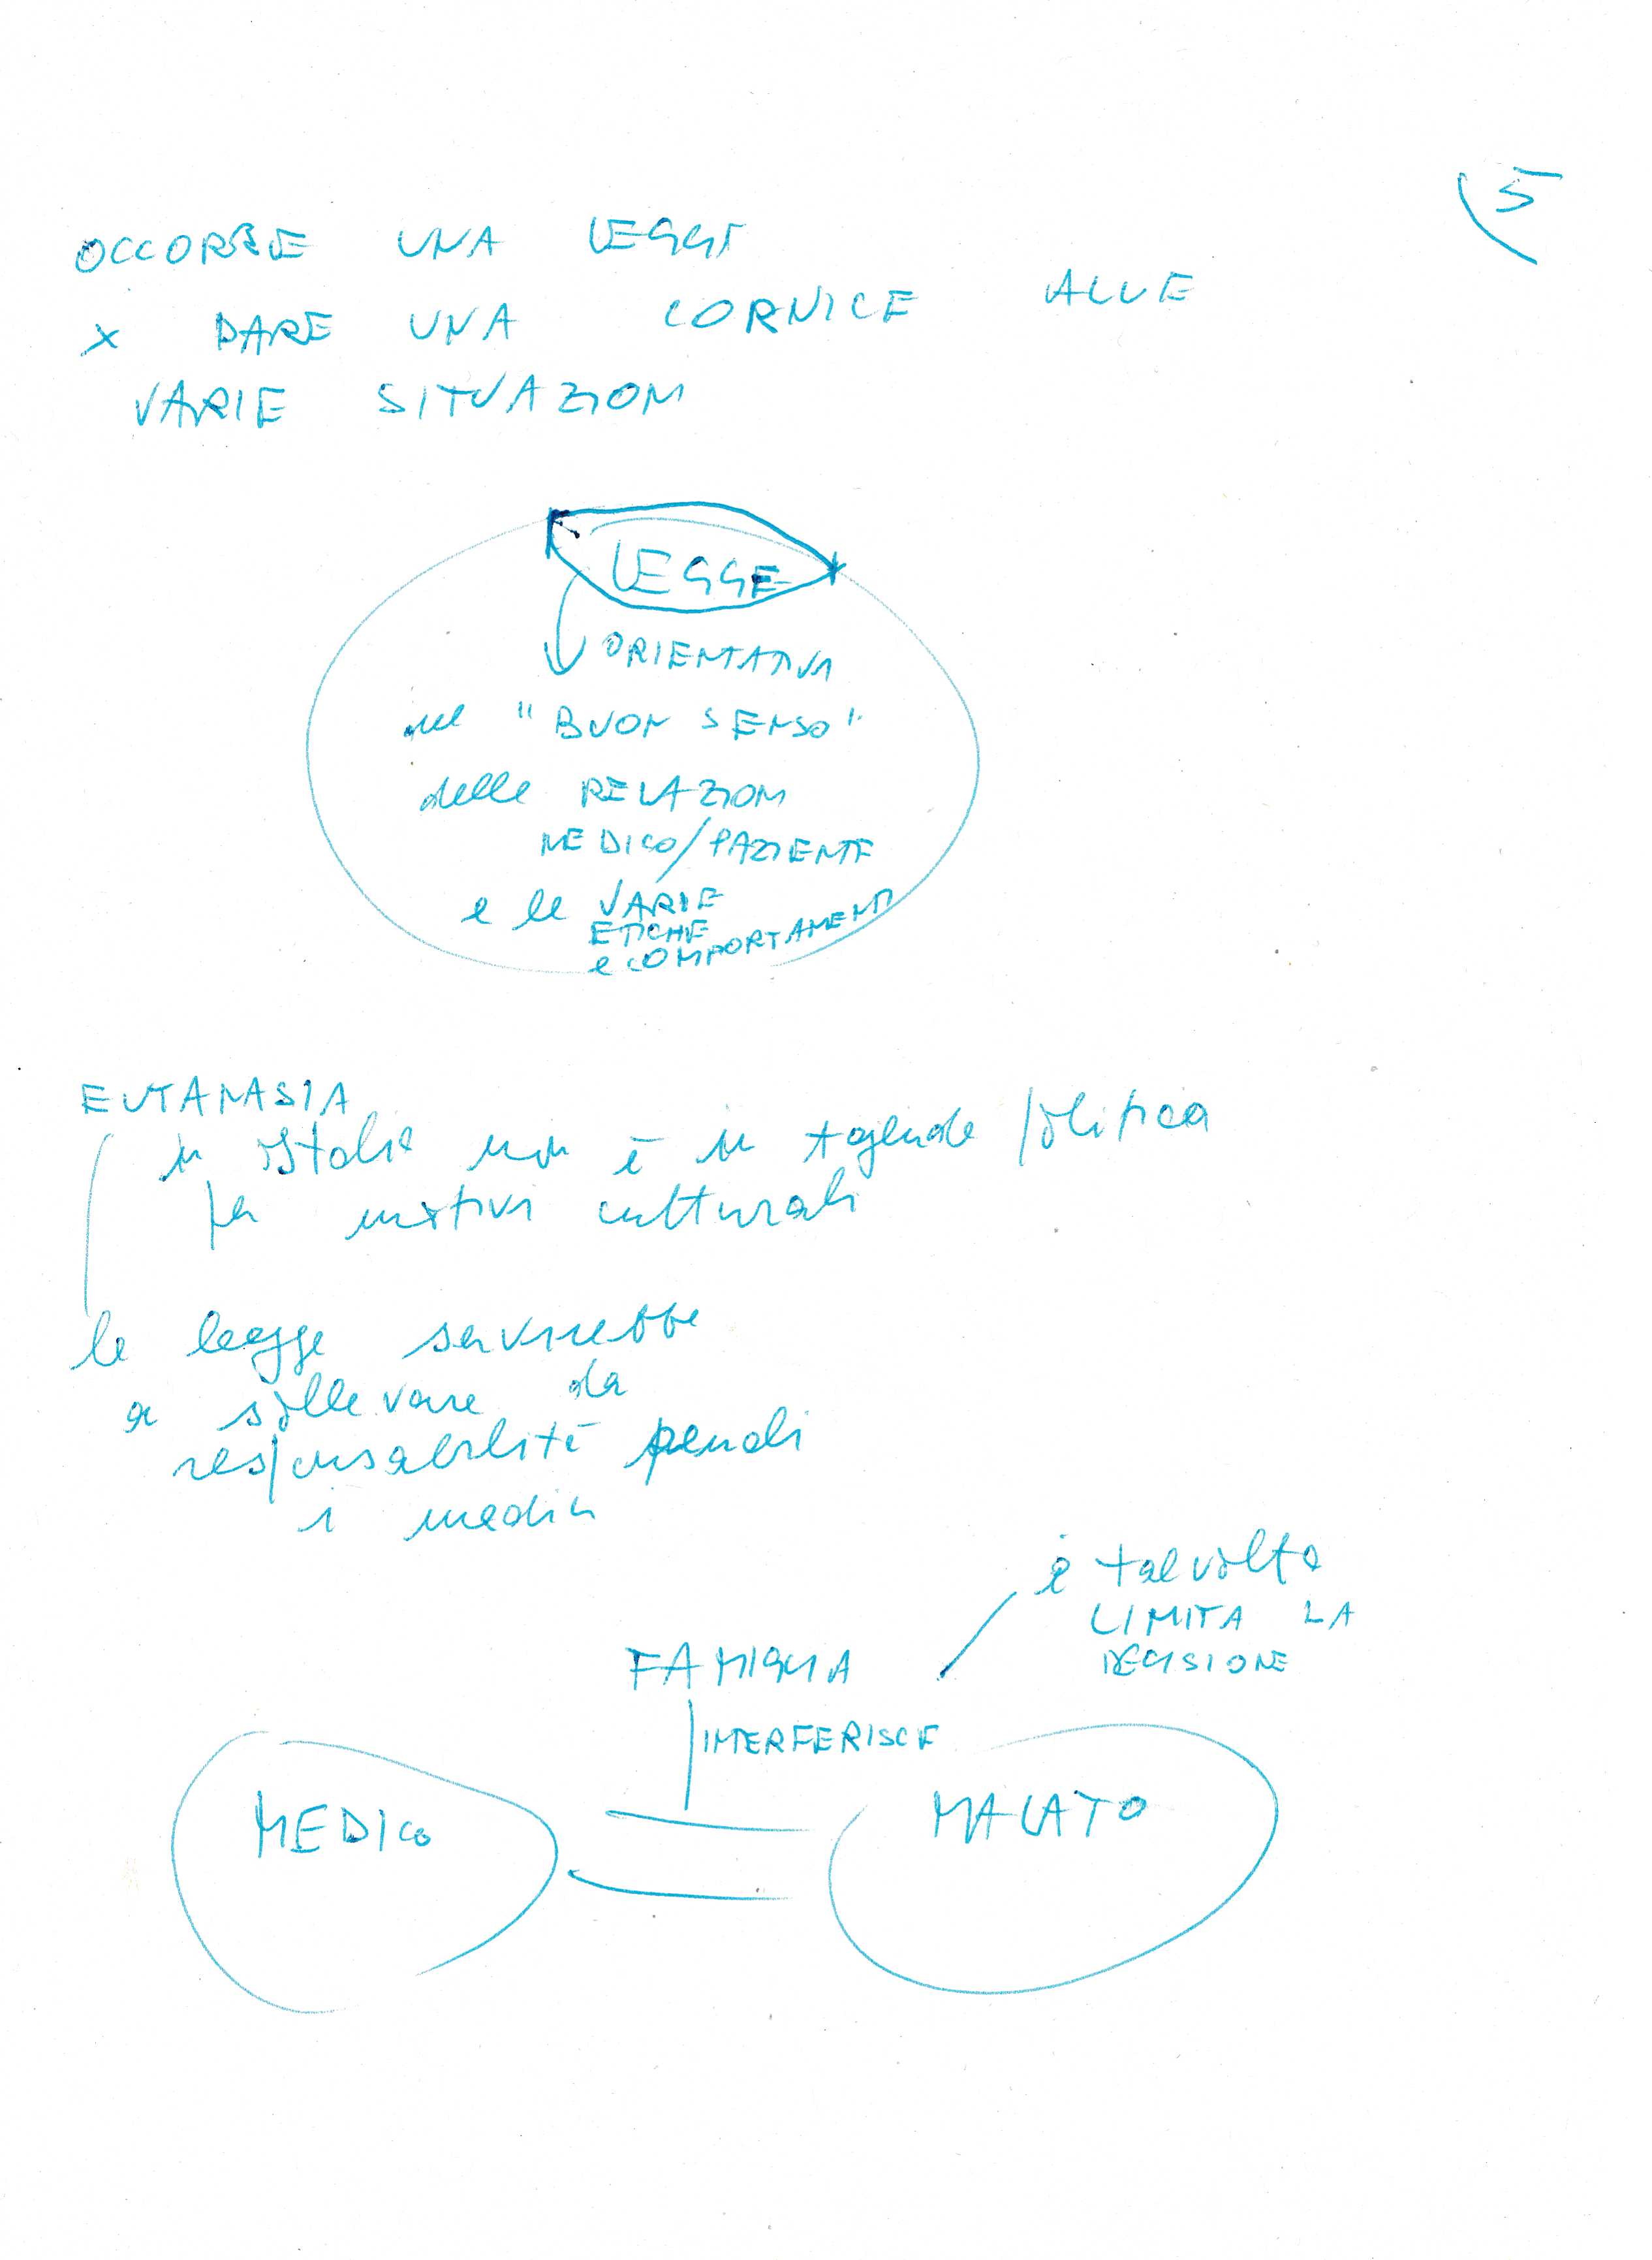 5
OCCORRE UNA LEGGE
x DARE UNA CORNICE ALLE
VARIE SITUAZIONI
LEGGE
ORIENTATIVA
nel "BUON SENSO"
delle RELAZIONI
MEDICO/PAZIENTE
e le VARIE
ETICHE
e COMPORTAMENTI
EUTANASIA
in Italia non è in agenda politica
per motivi culturali
la legge servirebbe
a sollevare da
responsabilità penali
i medici
e talvolta
LIMITA LA
DECISIONE
FAMIGLIA
INTERFERISCE
MEDICO
MALATO